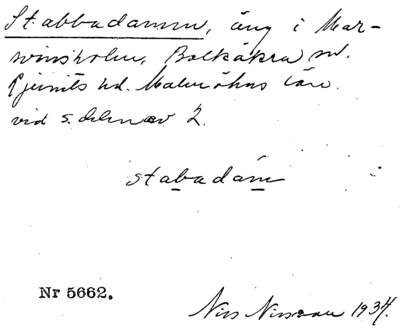 Stabbadamm, äng i Mar-
vinsholm, Balkåkra sn.
Ljunits hd. Malmöhus län.
vid s. delen av 2.
stabadám
Nr 5662.
Nils Nilsson 1934.